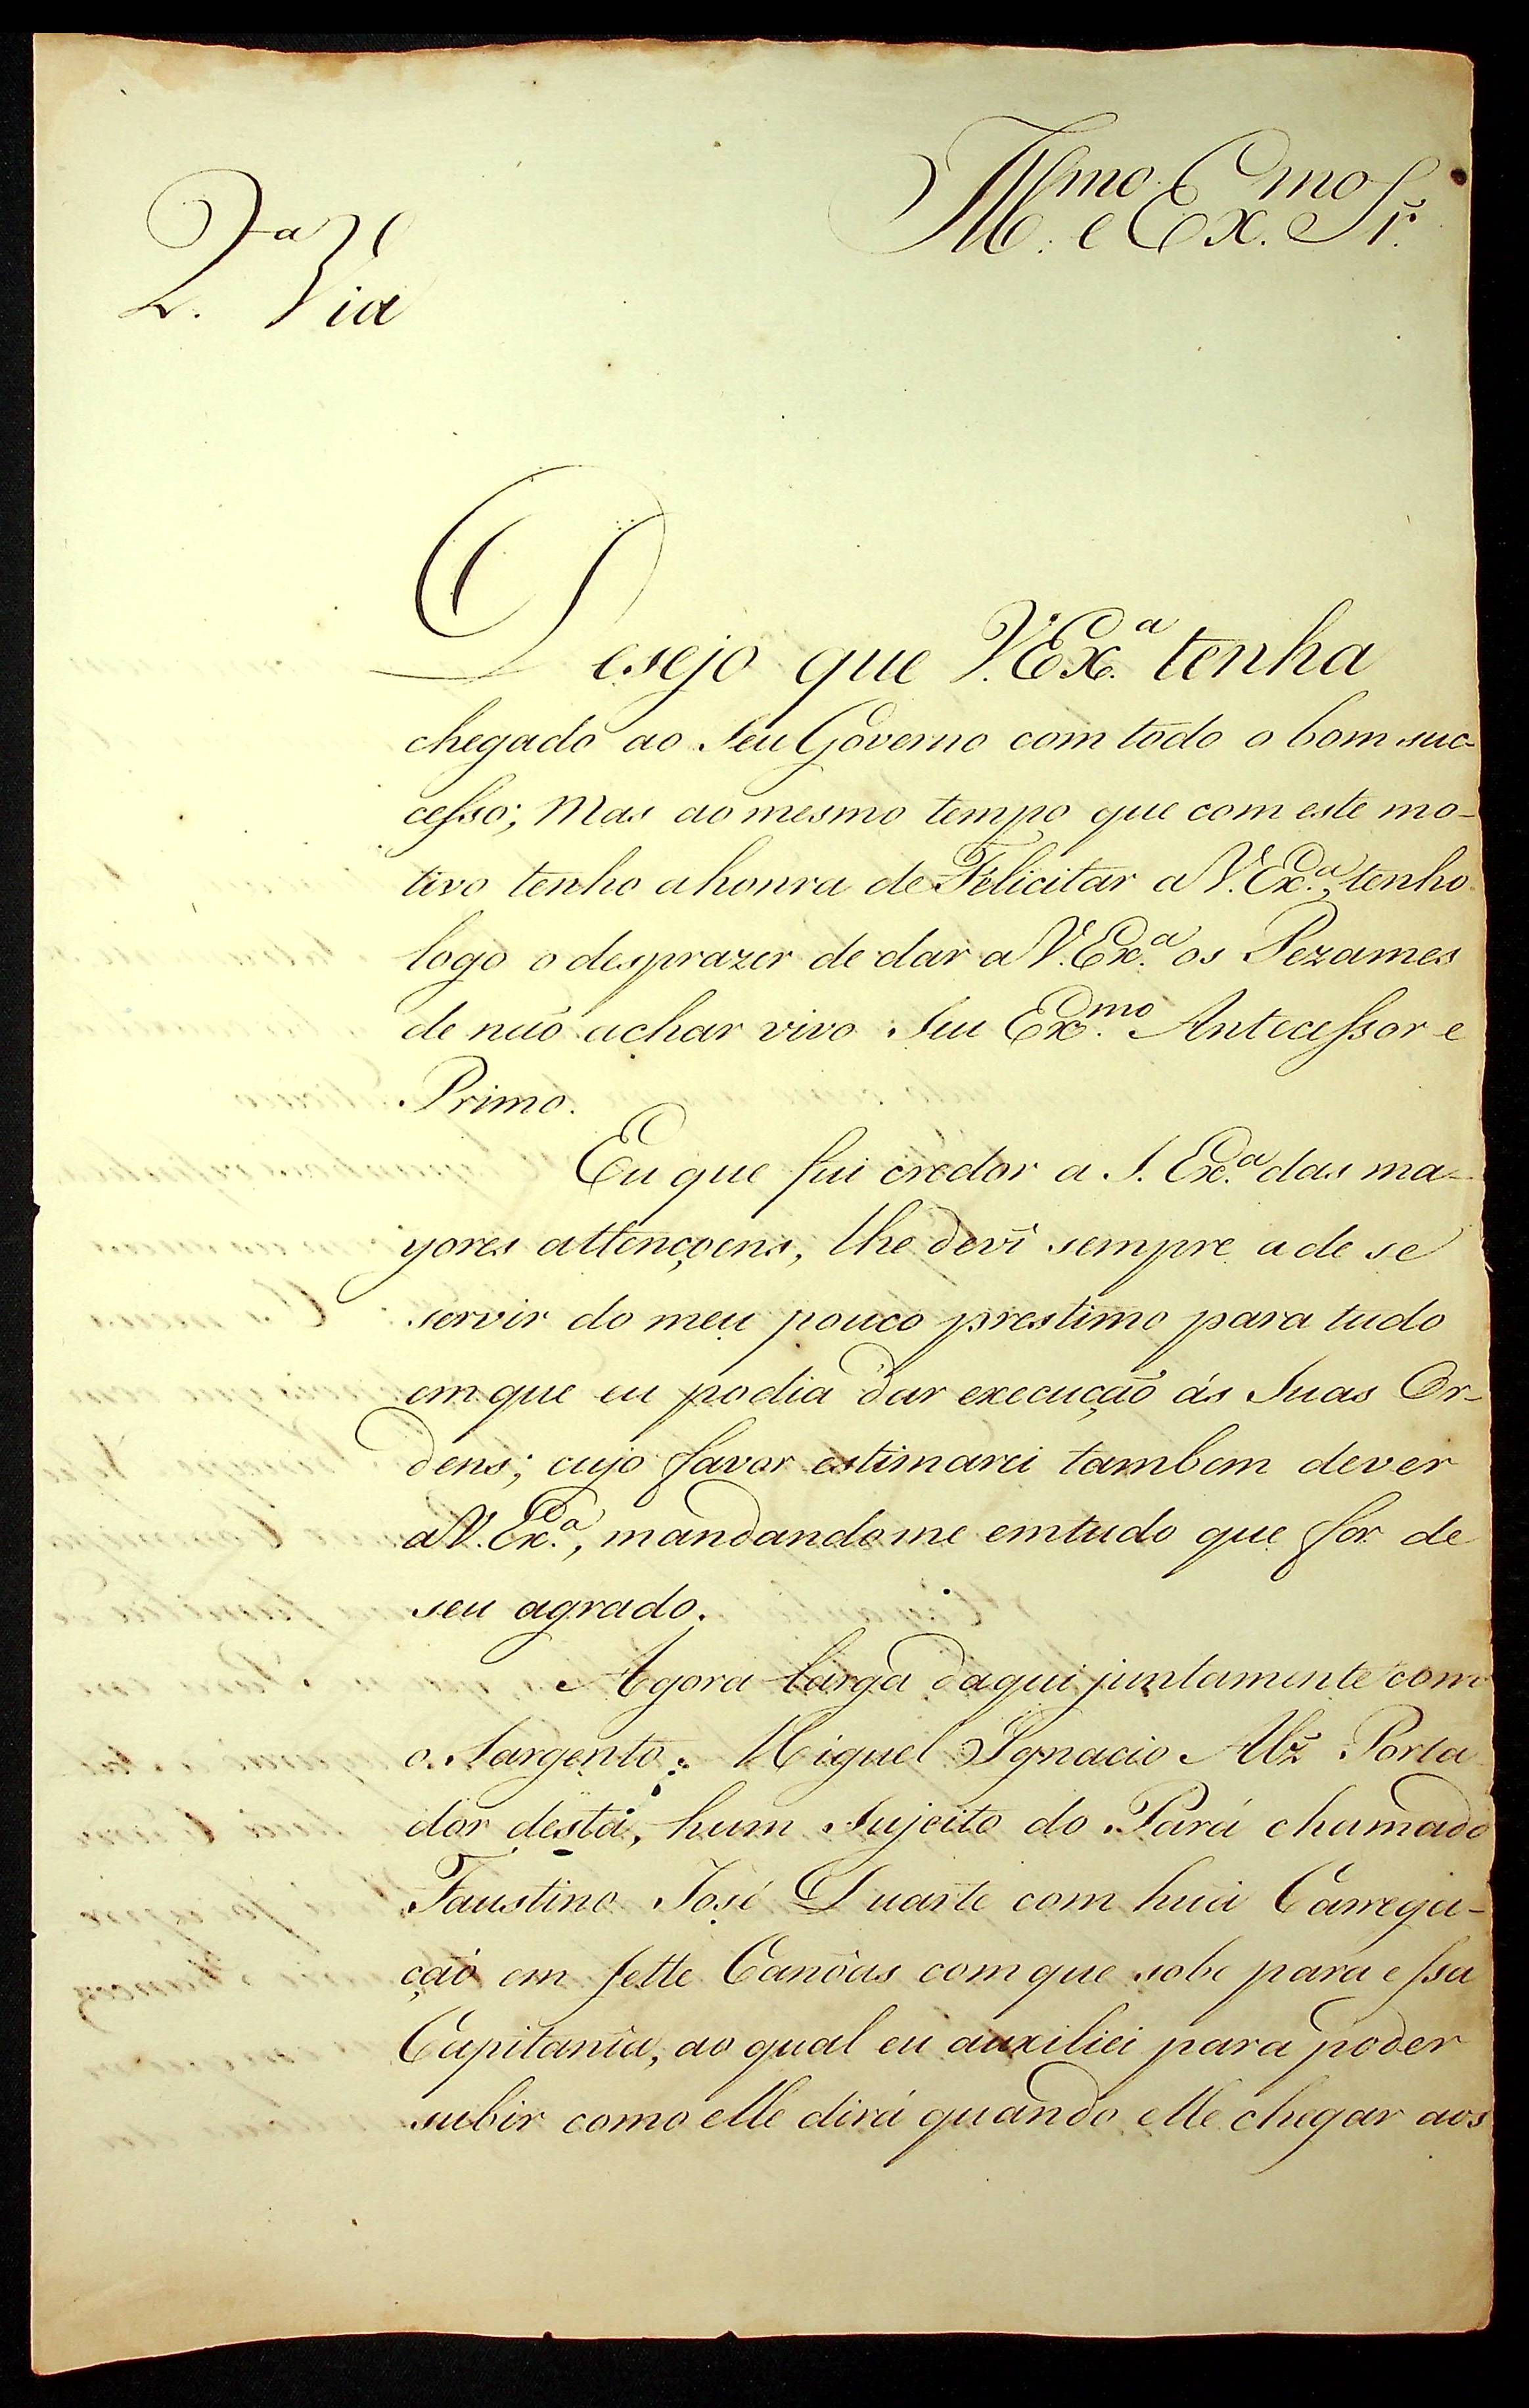 Ill.mo e Ex.mo Sr.
2.a Via
Desejo que V. Ex.a tenha
chegado ao Seu Governo com todo o bom suc-
cesso; Mas ao mesmo tempo que com este mo-
tivo tenho a honra de Felicitar a V. Ex.a, tenho
logo o desprazer de dar a V. Ex.a os Pezames
de naõ achar vivo Seu Ex.mo Antecessor e
Primo.
Eu que fui credor a S. Ex.a das ma-
yores attençoens, lhe devi sempre a de se
servir do meu pouco prestimo para tudo
em que eu podia dar execuçaõ ás Suas Or-
dens; cujo favor estimarei tambem dever
a V. Ex.a, mandandome em tudo que for de
seu agrado.
Agora larga daqui juntamente com
o Sargento Miguel Ignacio Alz Porta
dor desta, hum Sujeito do Pará chamado
Faustino José Duarte com huã Carrega-
çaõ em sette Canôas com que sobe para essa
Capitania, ao qual eu auxiliei para poder
subir como elle dirá quando elle chegar aos